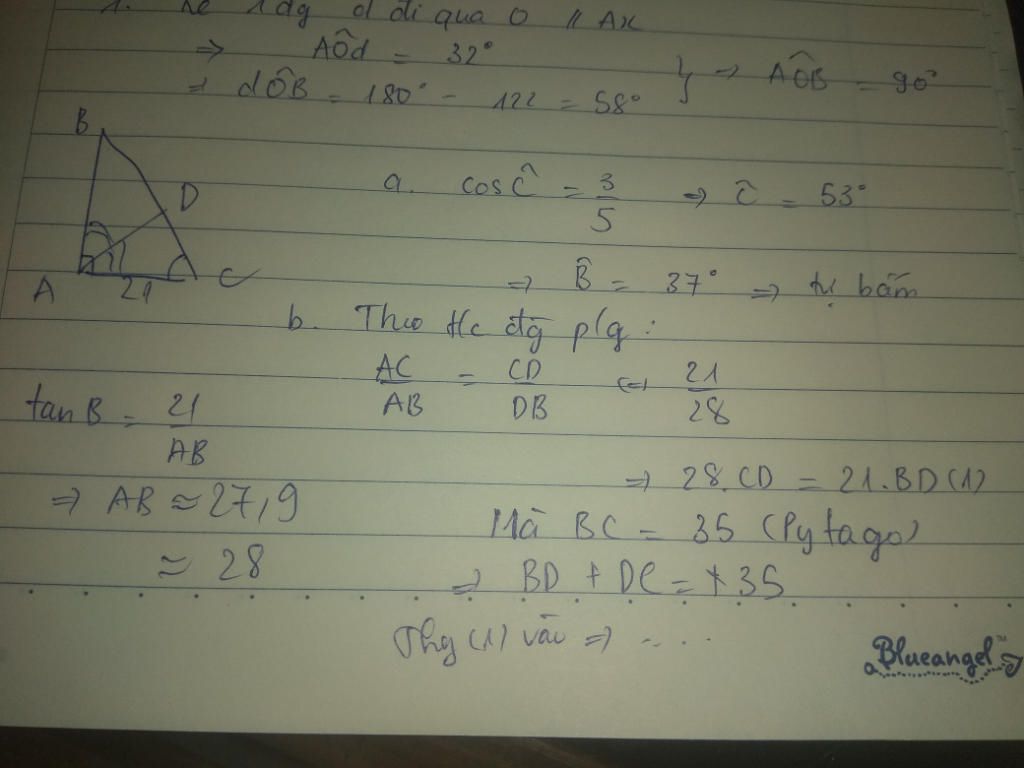 1. Kẻ 1 đg d đi qua O // Ax
=> AÔd = 32°
=> dÔB = 180° - 122 = 58° } => AÔB = 90°
B
D
A 21 C
a. cos Ĉ = 3/5 => Ĉ = 53°
=> B̂ = 37° => tự bấm
b. Theo t/c đg p/g:
AC/AB = CD/DB <=> 21/28
tan B = 21/AB
=> 28.CD = 21.BD (1)
=> AB ≈ 27,9
Mà BC = 35 (Pytago)
≈ 28
=> BD + DC = 35
Thay (1) vào => ....
Blueangel™